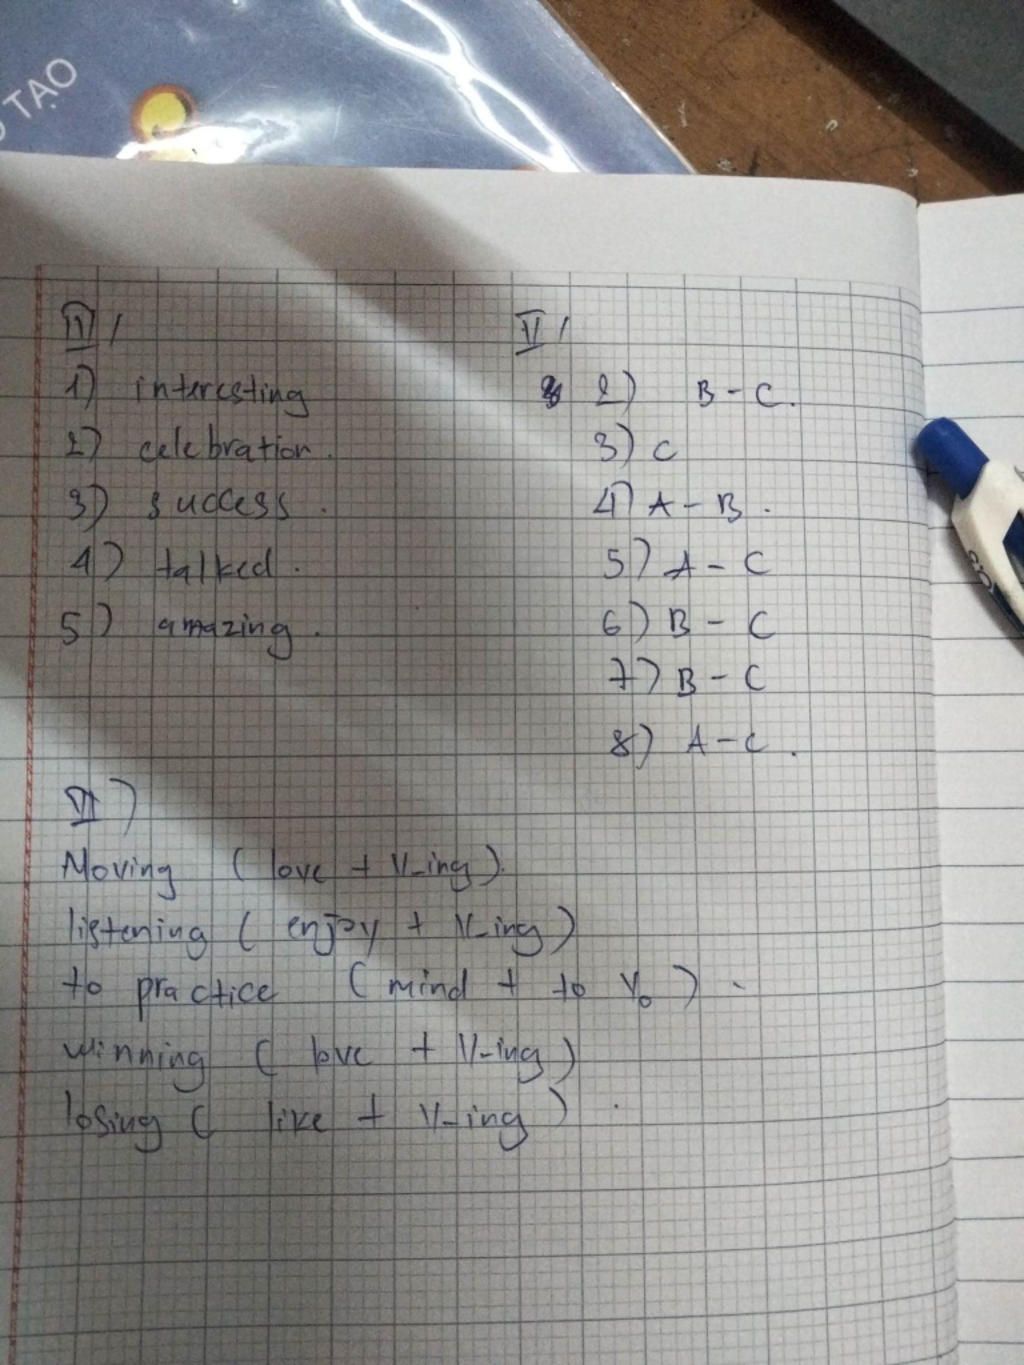 TẠO
IV/
1) interesting
2) celebration.
3) success.
4) talked.
5) amazing.
V/
2) B - C.
3) C
4) A - B.
5) A - C
6) B - C
7) B - C
8) A - C.
VI)
Moving (love + V-ing).
listening (enjoy + V-ing)
to practice (mind + to V₀).
winning (love + V-ing)
losing (like + V-ing).